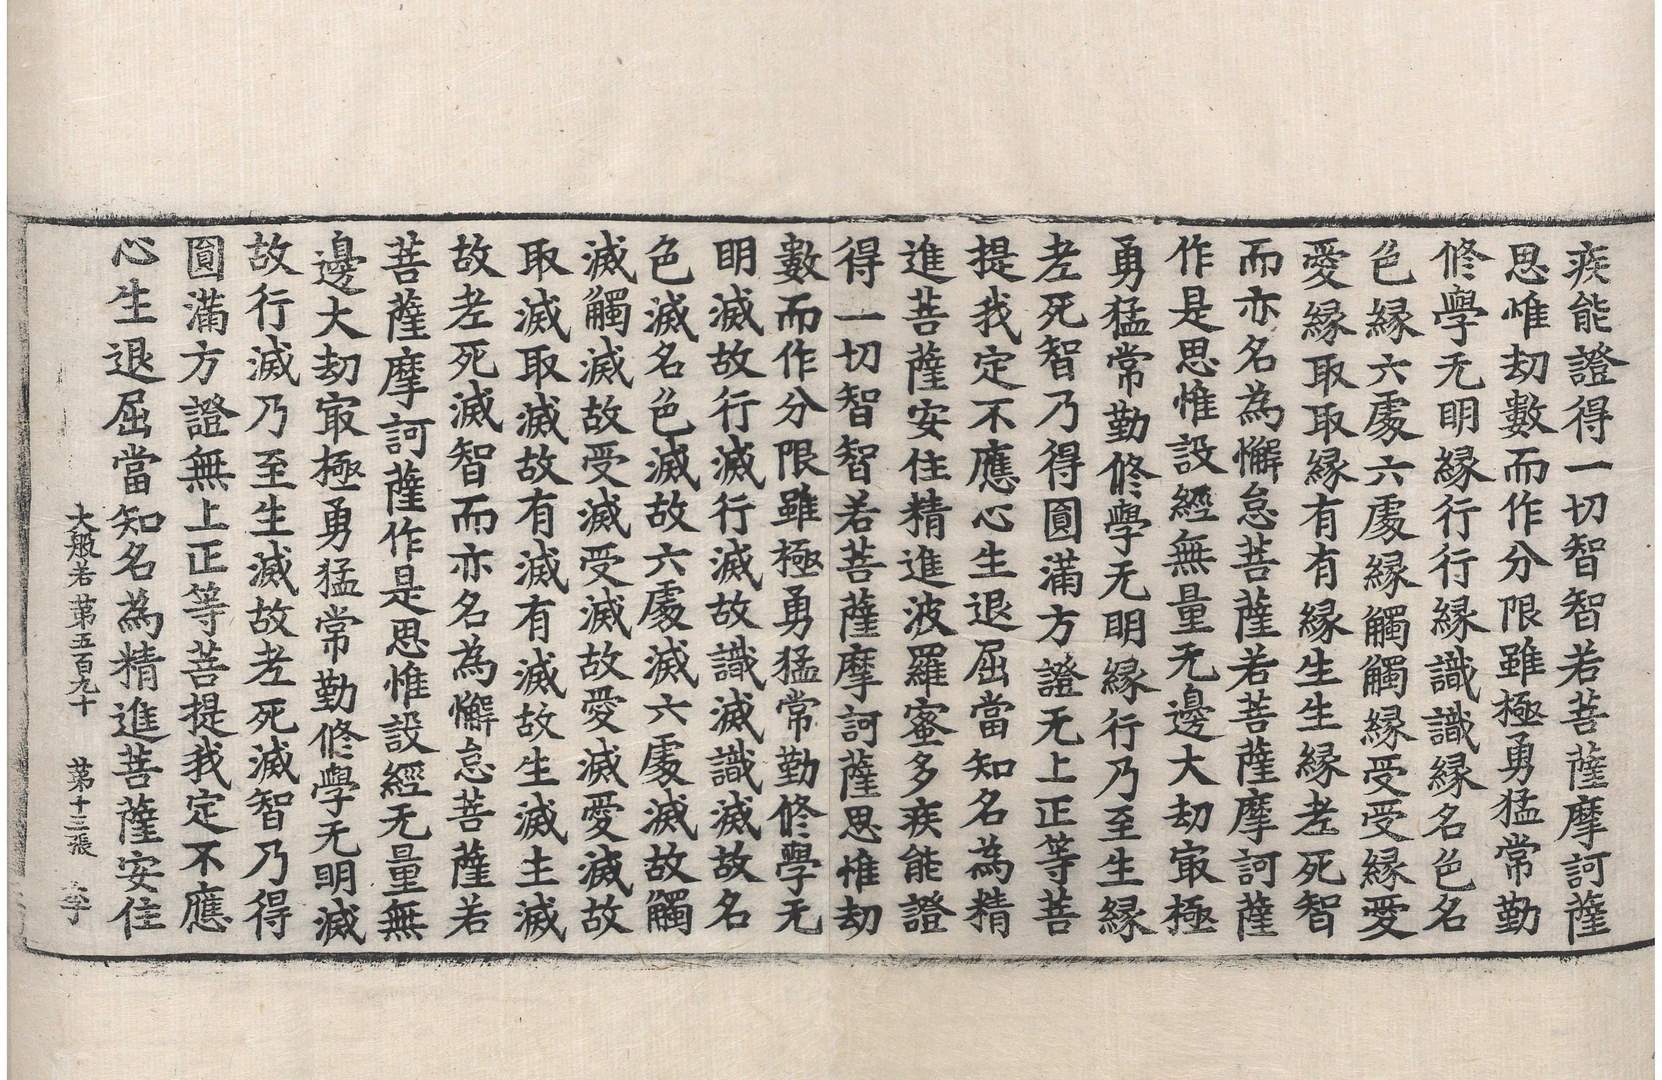 疾能證得一切智智若菩薩摩訶薩
思惟劫數而作分限雖極勇猛常勤
修學无明緣行行緣識識緣名色名
色緣六處六處緣觸觸緣受受緣愛
愛緣取取緣有有緣生生緣老死智
而亦名為懈怠菩薩若菩薩摩訶薩
作是思惟設經無量无邊大劫㝡極
勇猛常勤修學无明緣行乃至生緣
老死智乃得圓滿方證无上正等菩
提我定不應心生退屈當知名為精
進菩薩安住精進波羅蜜多疾能證
得一切智智若菩薩摩訶薩思惟劫
數而作分限雖極勇猛常勤修學无
明滅故行滅行滅故識滅識滅故名
色滅名色滅故六處滅六處滅故觸
滅觸滅故受滅受滅故愛滅愛滅故
取滅取滅故有滅有滅故生滅生滅
故老死滅智而亦名為懈怠菩薩若
菩薩摩訶薩作是思惟設經无量無
邊大劫㝡極勇猛常勤修學无明滅
故行滅乃至生滅故老死滅智乃得
圓滿方證無上正等菩提我定不應
心生退屈當知名為精進菩薩安住
大般若第五百九十 第十三張 李